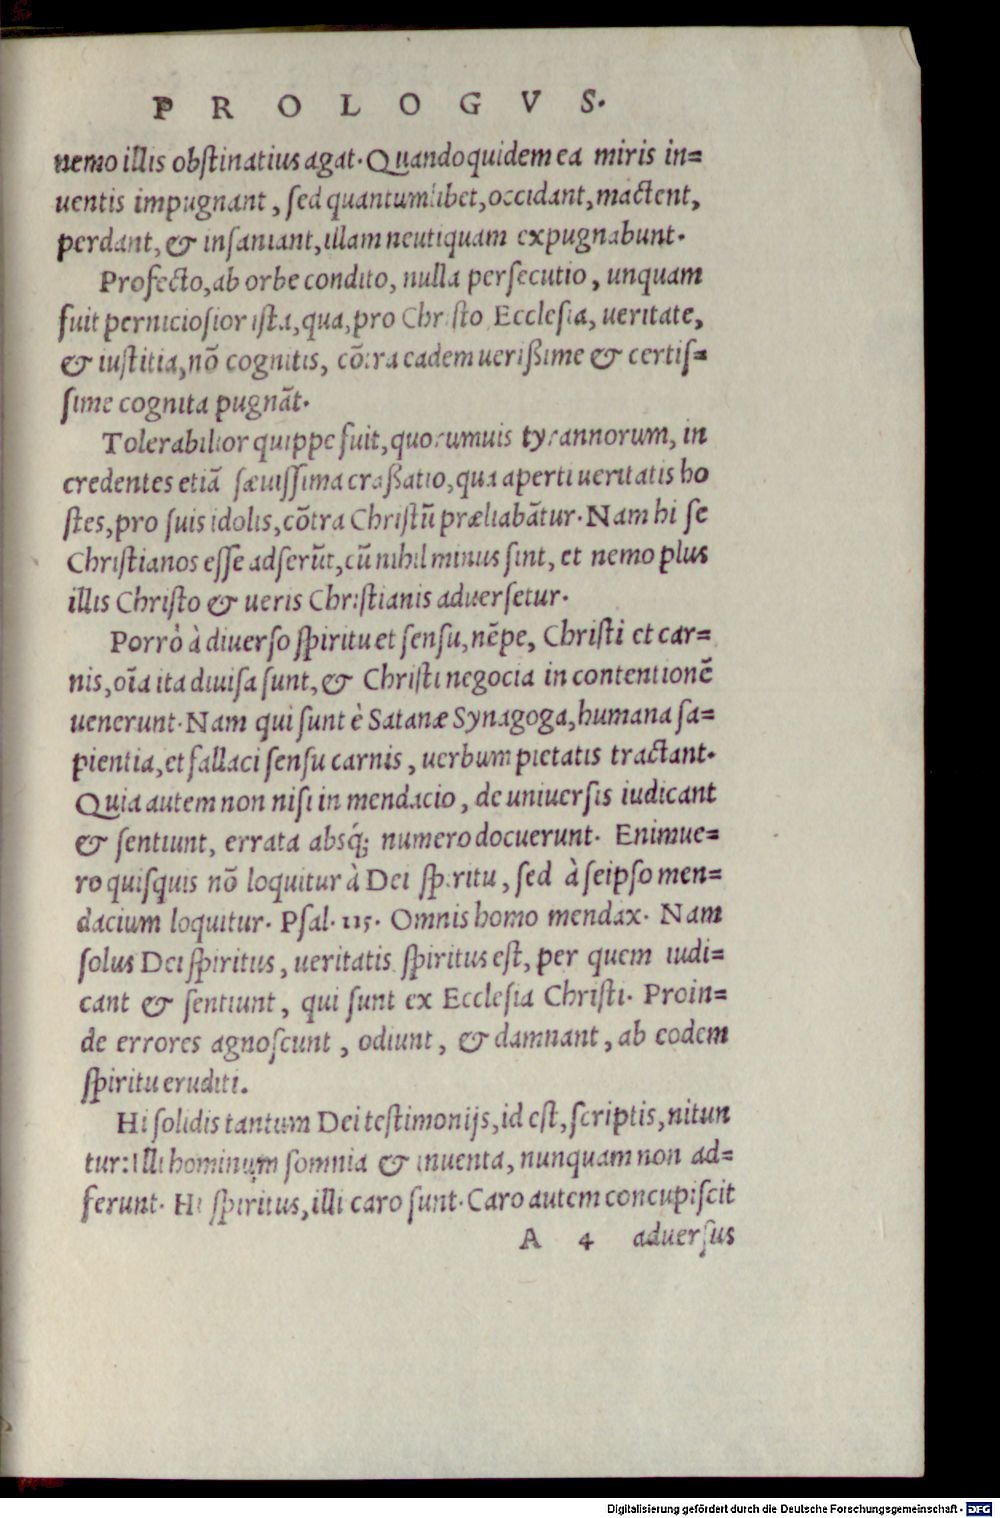 PROLOGVS.
nemo illis obstinatius agat. Quandoquidem ea miris in=
uentis impugnant, sed quantumlibet, occidant, mactent,
perdant, & insaniant, illam neutiquam expugnabunt.
Profecto, ab orbe condito, nulla persecutio, unquam
fuit perniciosior ista, qua, pro Christo Ecclesia, ueritate,
& iustitia, nõ cognitis, cõtra eadem uerißime & certis=
sime cognita pugnãt.
Tolerabilior quippe fuit, quorumuis tyrannorum, in
credentes etiã sæuissima craßatio, qua aperti ueritatis ho
stes, pro suis idolis, cõtra Christũ præliabãtur. Nam hi se
Christianos esse adserũt, cũ nihil minus sint, et nemo plus
illis Christo & ueris Christianis aduersetur.
Porrò à diuerso spiritu et sensu, nẽpe, Christi et car=
nis, oĩa ita diuisa sunt, & Christi negocia in contentionẽ
uenerunt. Nam qui sunt è Satanæ Synagoga, humana sa=
pientia, et fallaci sensu carnis, uerbum pietatis tractant.
Quia autem non nisi in mendacio, de uniuersis iudicant
& sentiunt, errata absq́; numero docuerunt. Enimue=
ro quisquis nõ loquitur à Dei spiritu, sed à seipso men=
dacium loquitur. Psal. 115. Omnis homo mendax. Nam
solus Dei spiritus, ueritatis spiritus est, per quem iudi=
cant & sentiunt, qui sunt ex Ecclesia Christi. Proin=
de errores agnoscunt, odiunt, & damnant, ab eodem
spiritu eruditi.
Hi solidis tantum Dei testimonijs, id est, scriptis, nitun
tur: Illi hominum somnia & inuenta, nunquam non ad=
ferunt. Hi spiritus, illi caro sunt. Caro autem concupiscit
A 4 aduersus
Digitalisierung gefördert durch die Deutsche Forschungsgemeinschaft - DFG